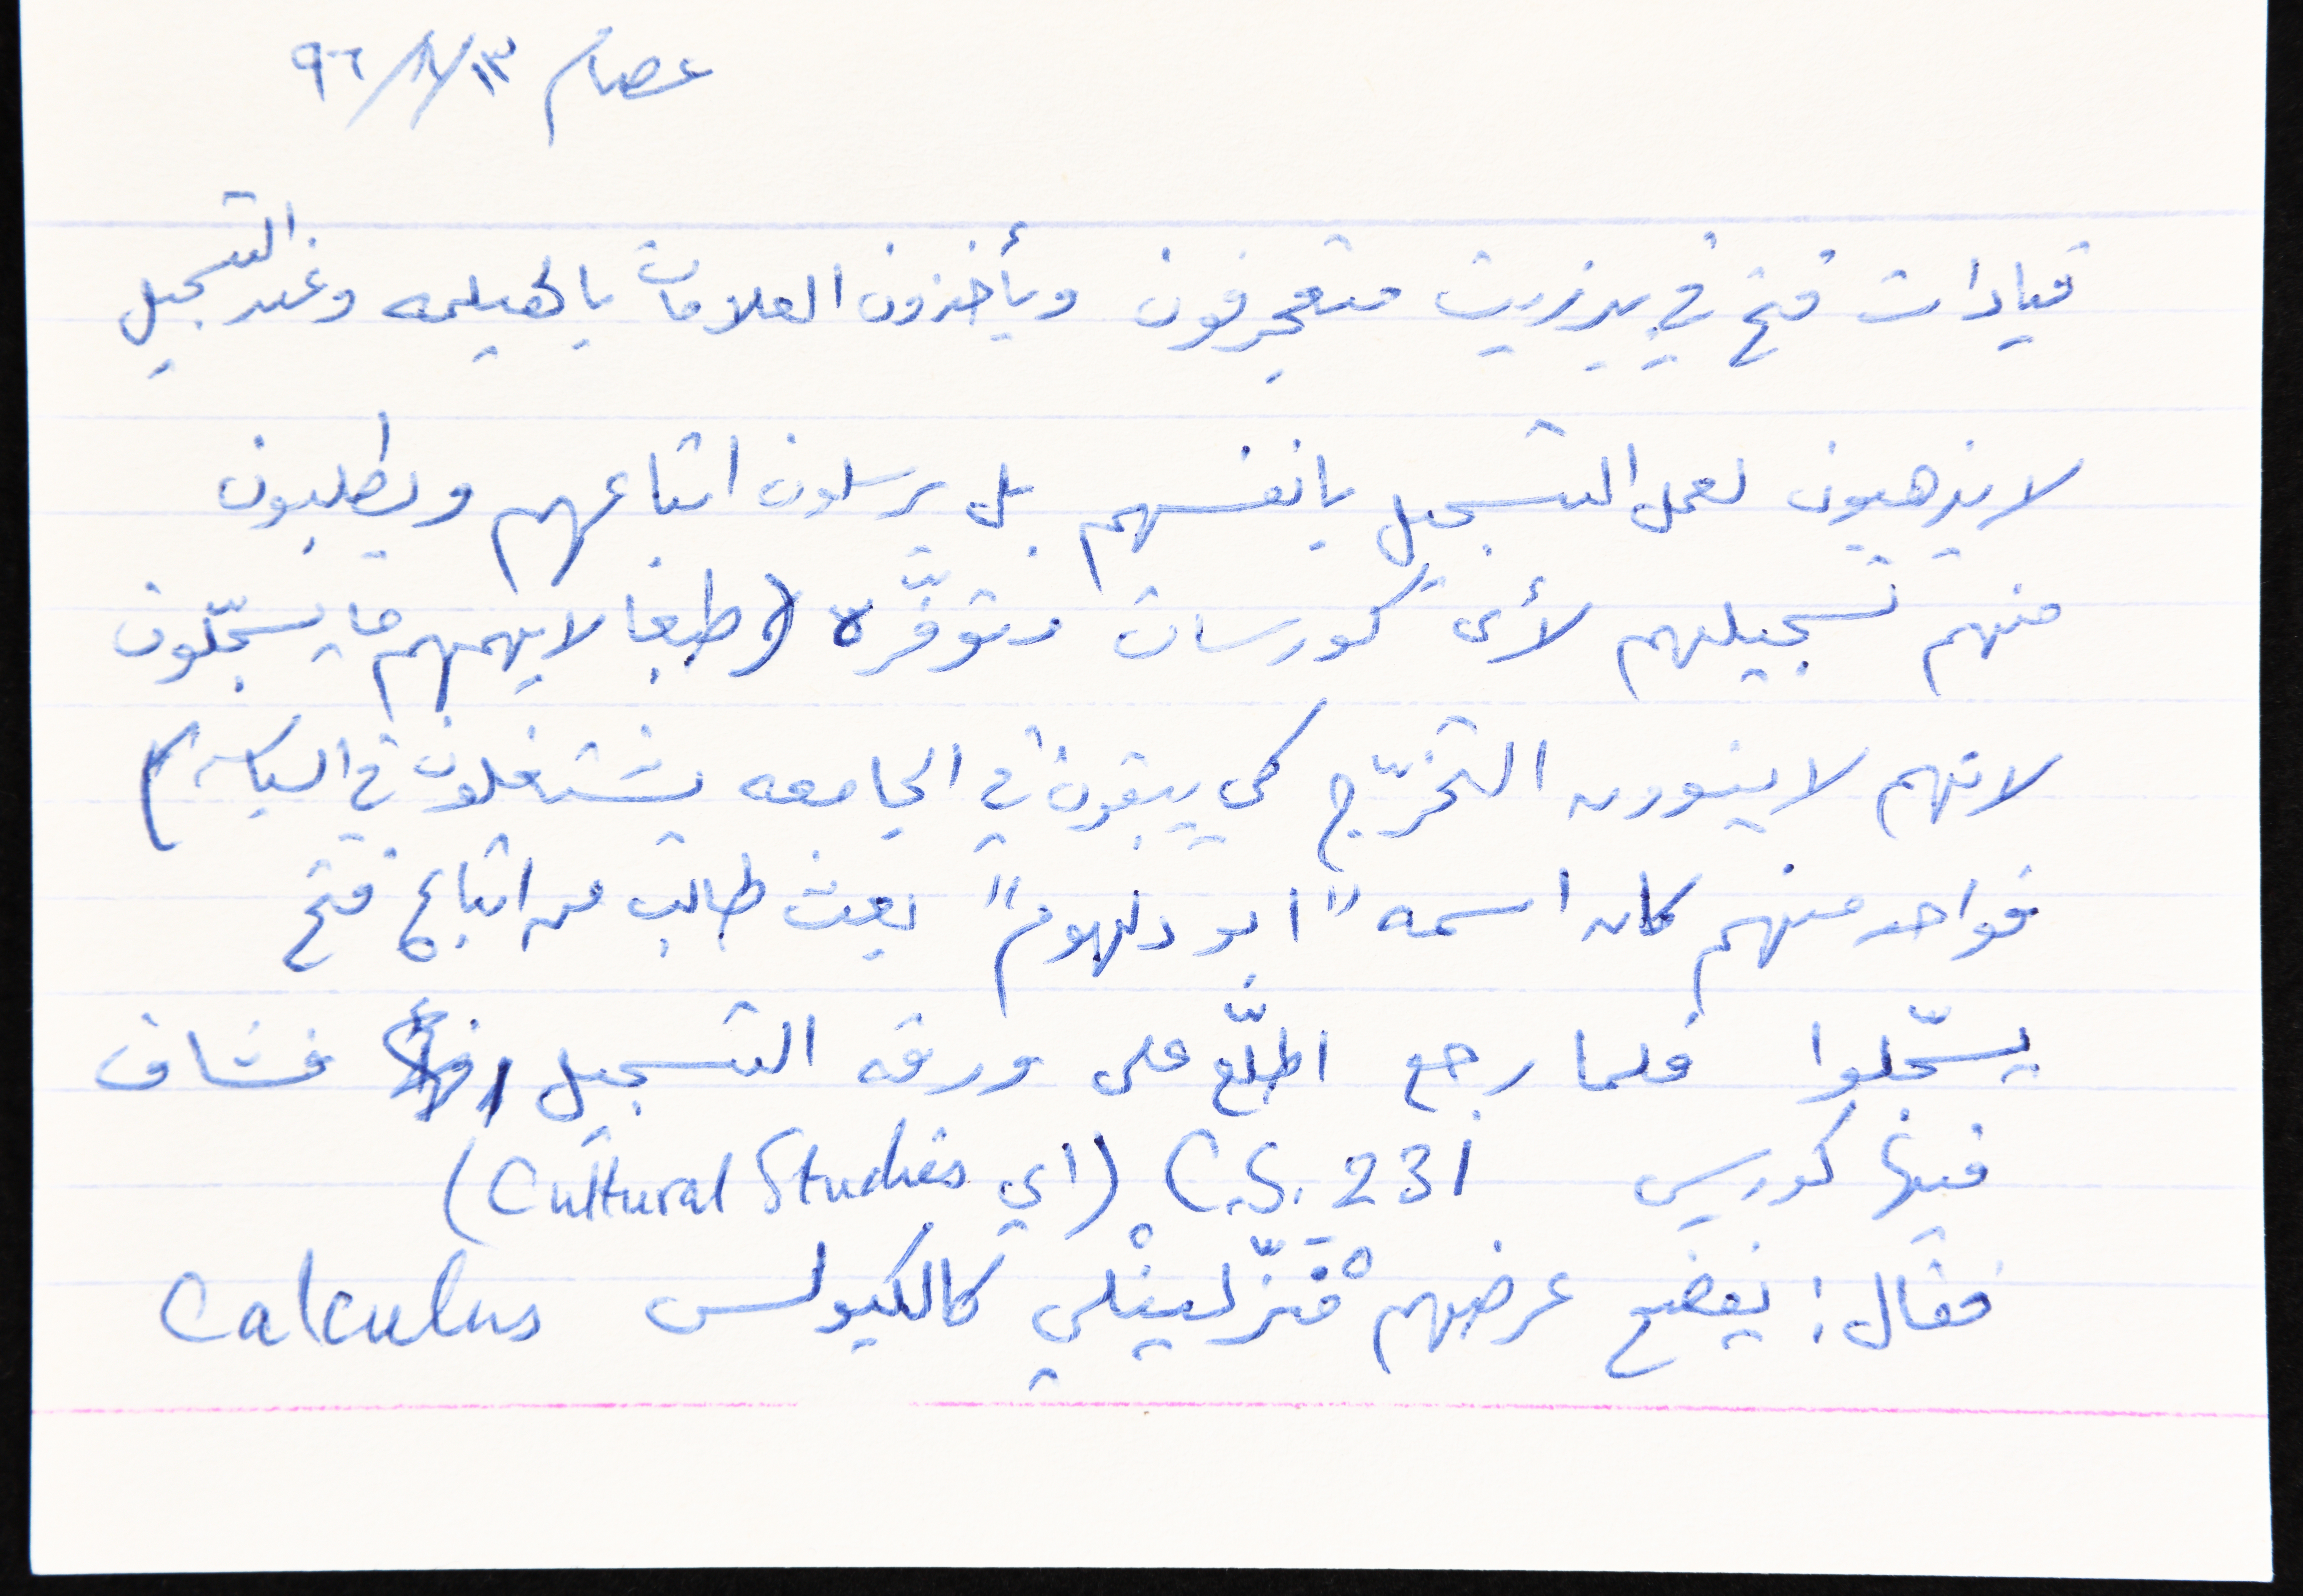 عصام ١٣/٨/٩٦
قيادات فتح في بيرزيت متعجرفون ويأخذون العلامات بالهيلمه وعند التسجيل
لا يذهبون لعمل التسجيل بانفسهم بل يرسلون اتباعهم ويطلبون
منهم تسجيلهم لأي كورسات متوفّره (طبعا لا يهمهم ما يسجّلون
لانهم لا ينوون التخرّج كي يبقون في الجامعه يشتغلون في السياسه)
فواحد منهم كان اسمه "ابو دلهوم" بعث طالب من اتباع فتح
يسّجلوا فلما رجع اطلّع على ورقه التسجيل فشاف
فيها كورس C.S. 231 (اي Cultural Studies)
فقال: يفضح عرضهم منزّلينْلي كالكيولس Calculus